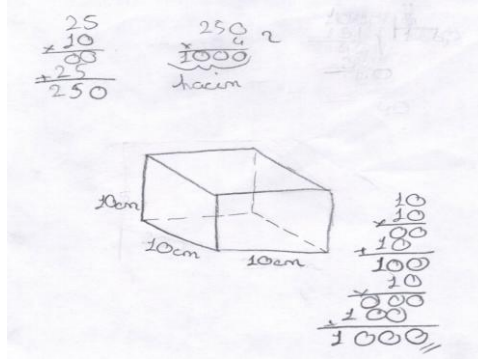 25
× 10
00
+ 25
250
250
× 4
1000
hacim
10cm
10cm
10cm
10
× 10
00
+ 10
100
× 10
000
+ 100
1000